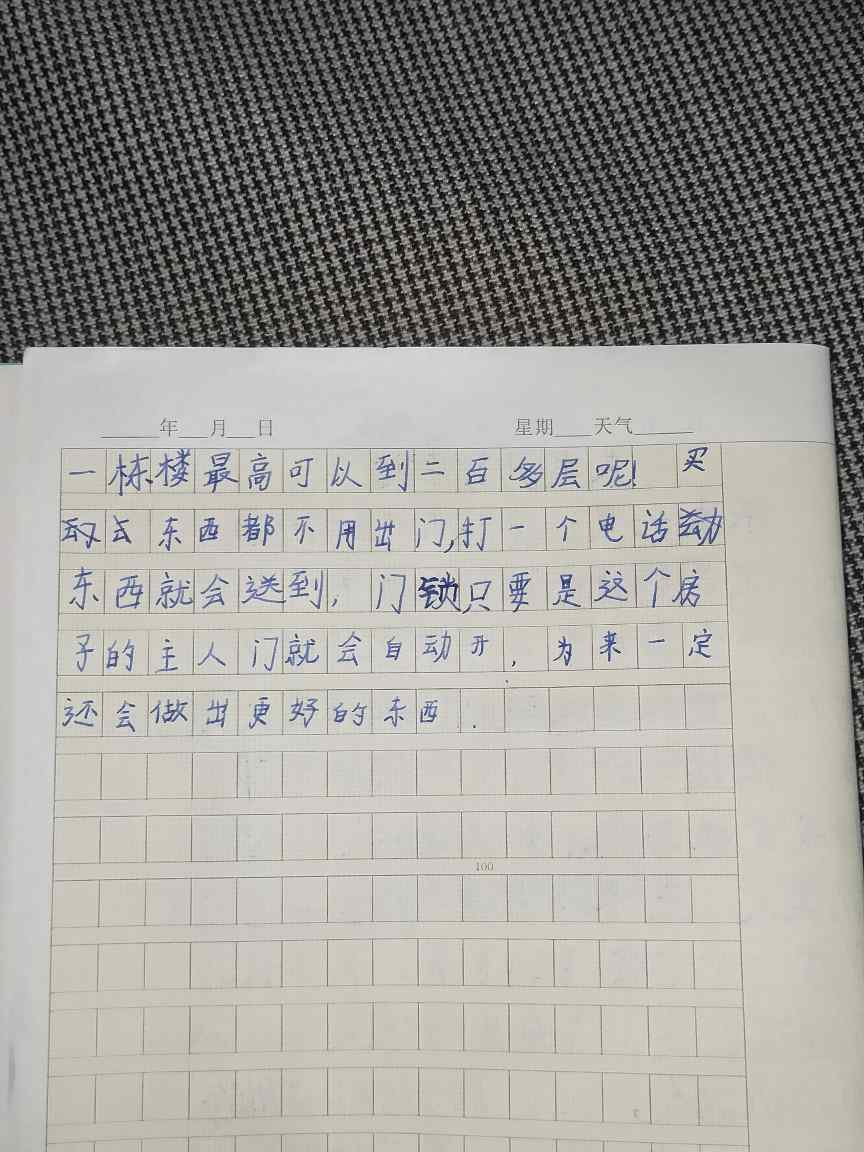 年 月 日 星期 天气
一栋楼最高可以到二百多层呢! 买
东西都不用出门,打一个电话
东西就会送到,门锁只要是这个房
子的主人门就会自动开,为来一定
还会做出更好的东西.
100